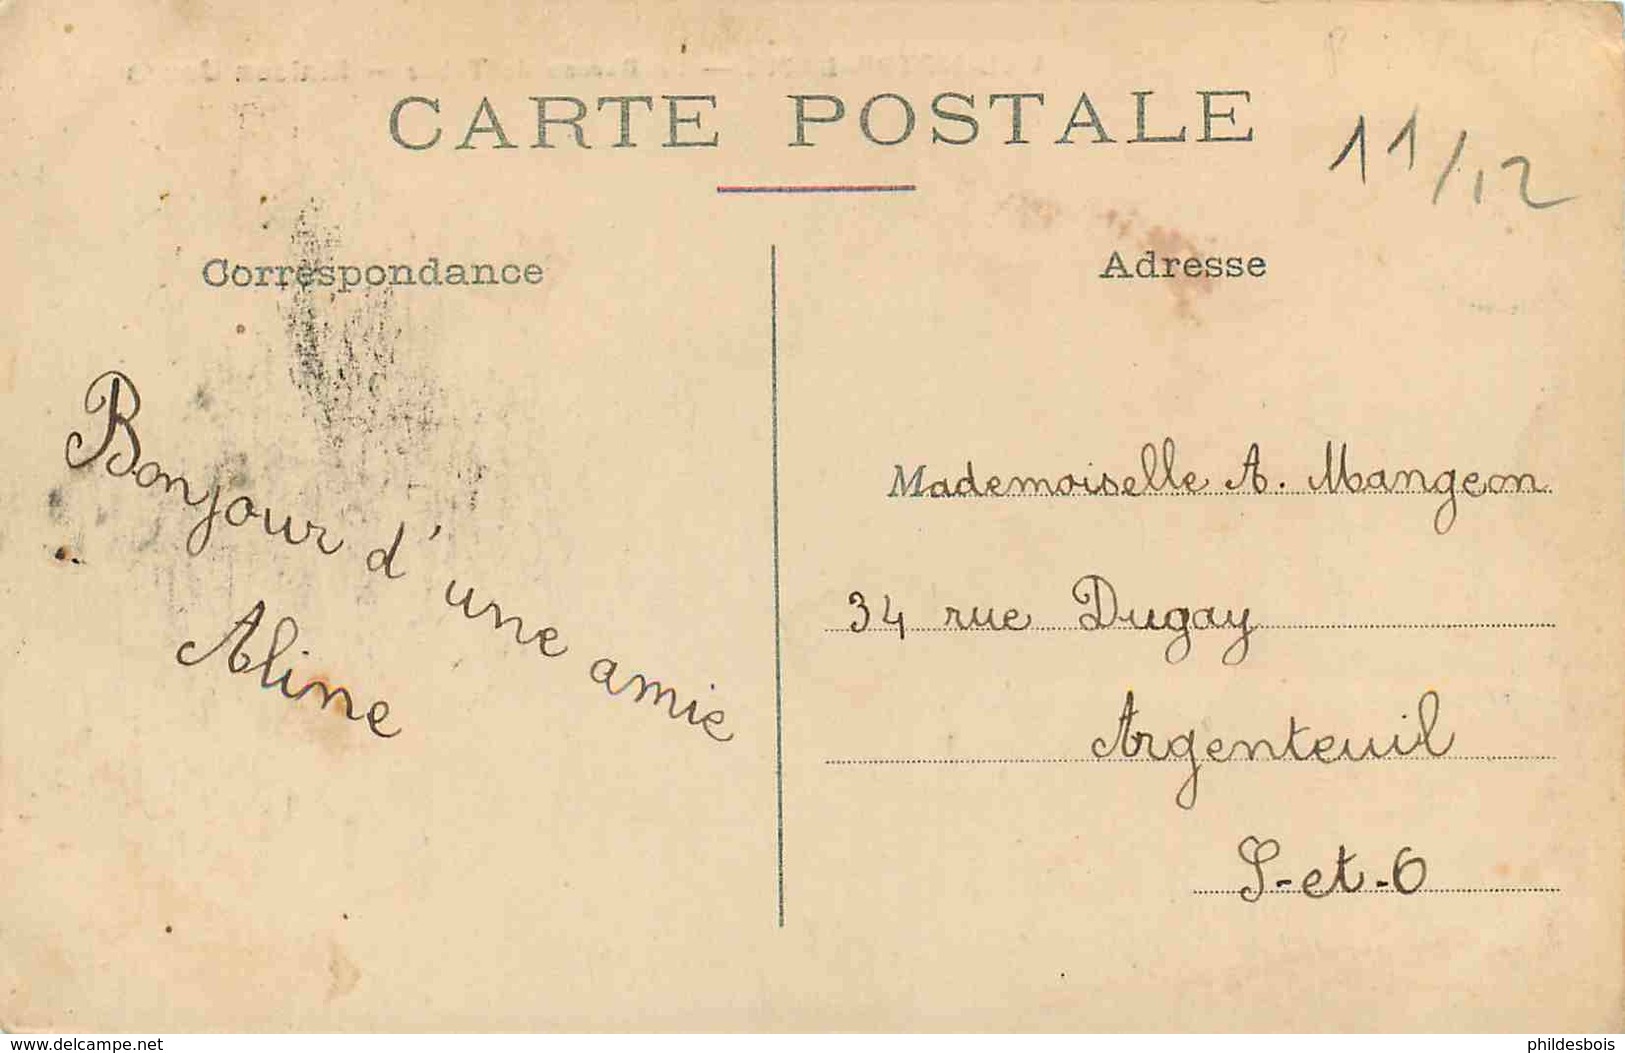 CARTE POSTALE
11/12
Correspondance
Adresse
Bonjour d'une amie
Aline
Mademoiselle A. Mangeon
34 rue Dugay
Argenteuil
S-et-O
www.delcampe.net
phildesbois